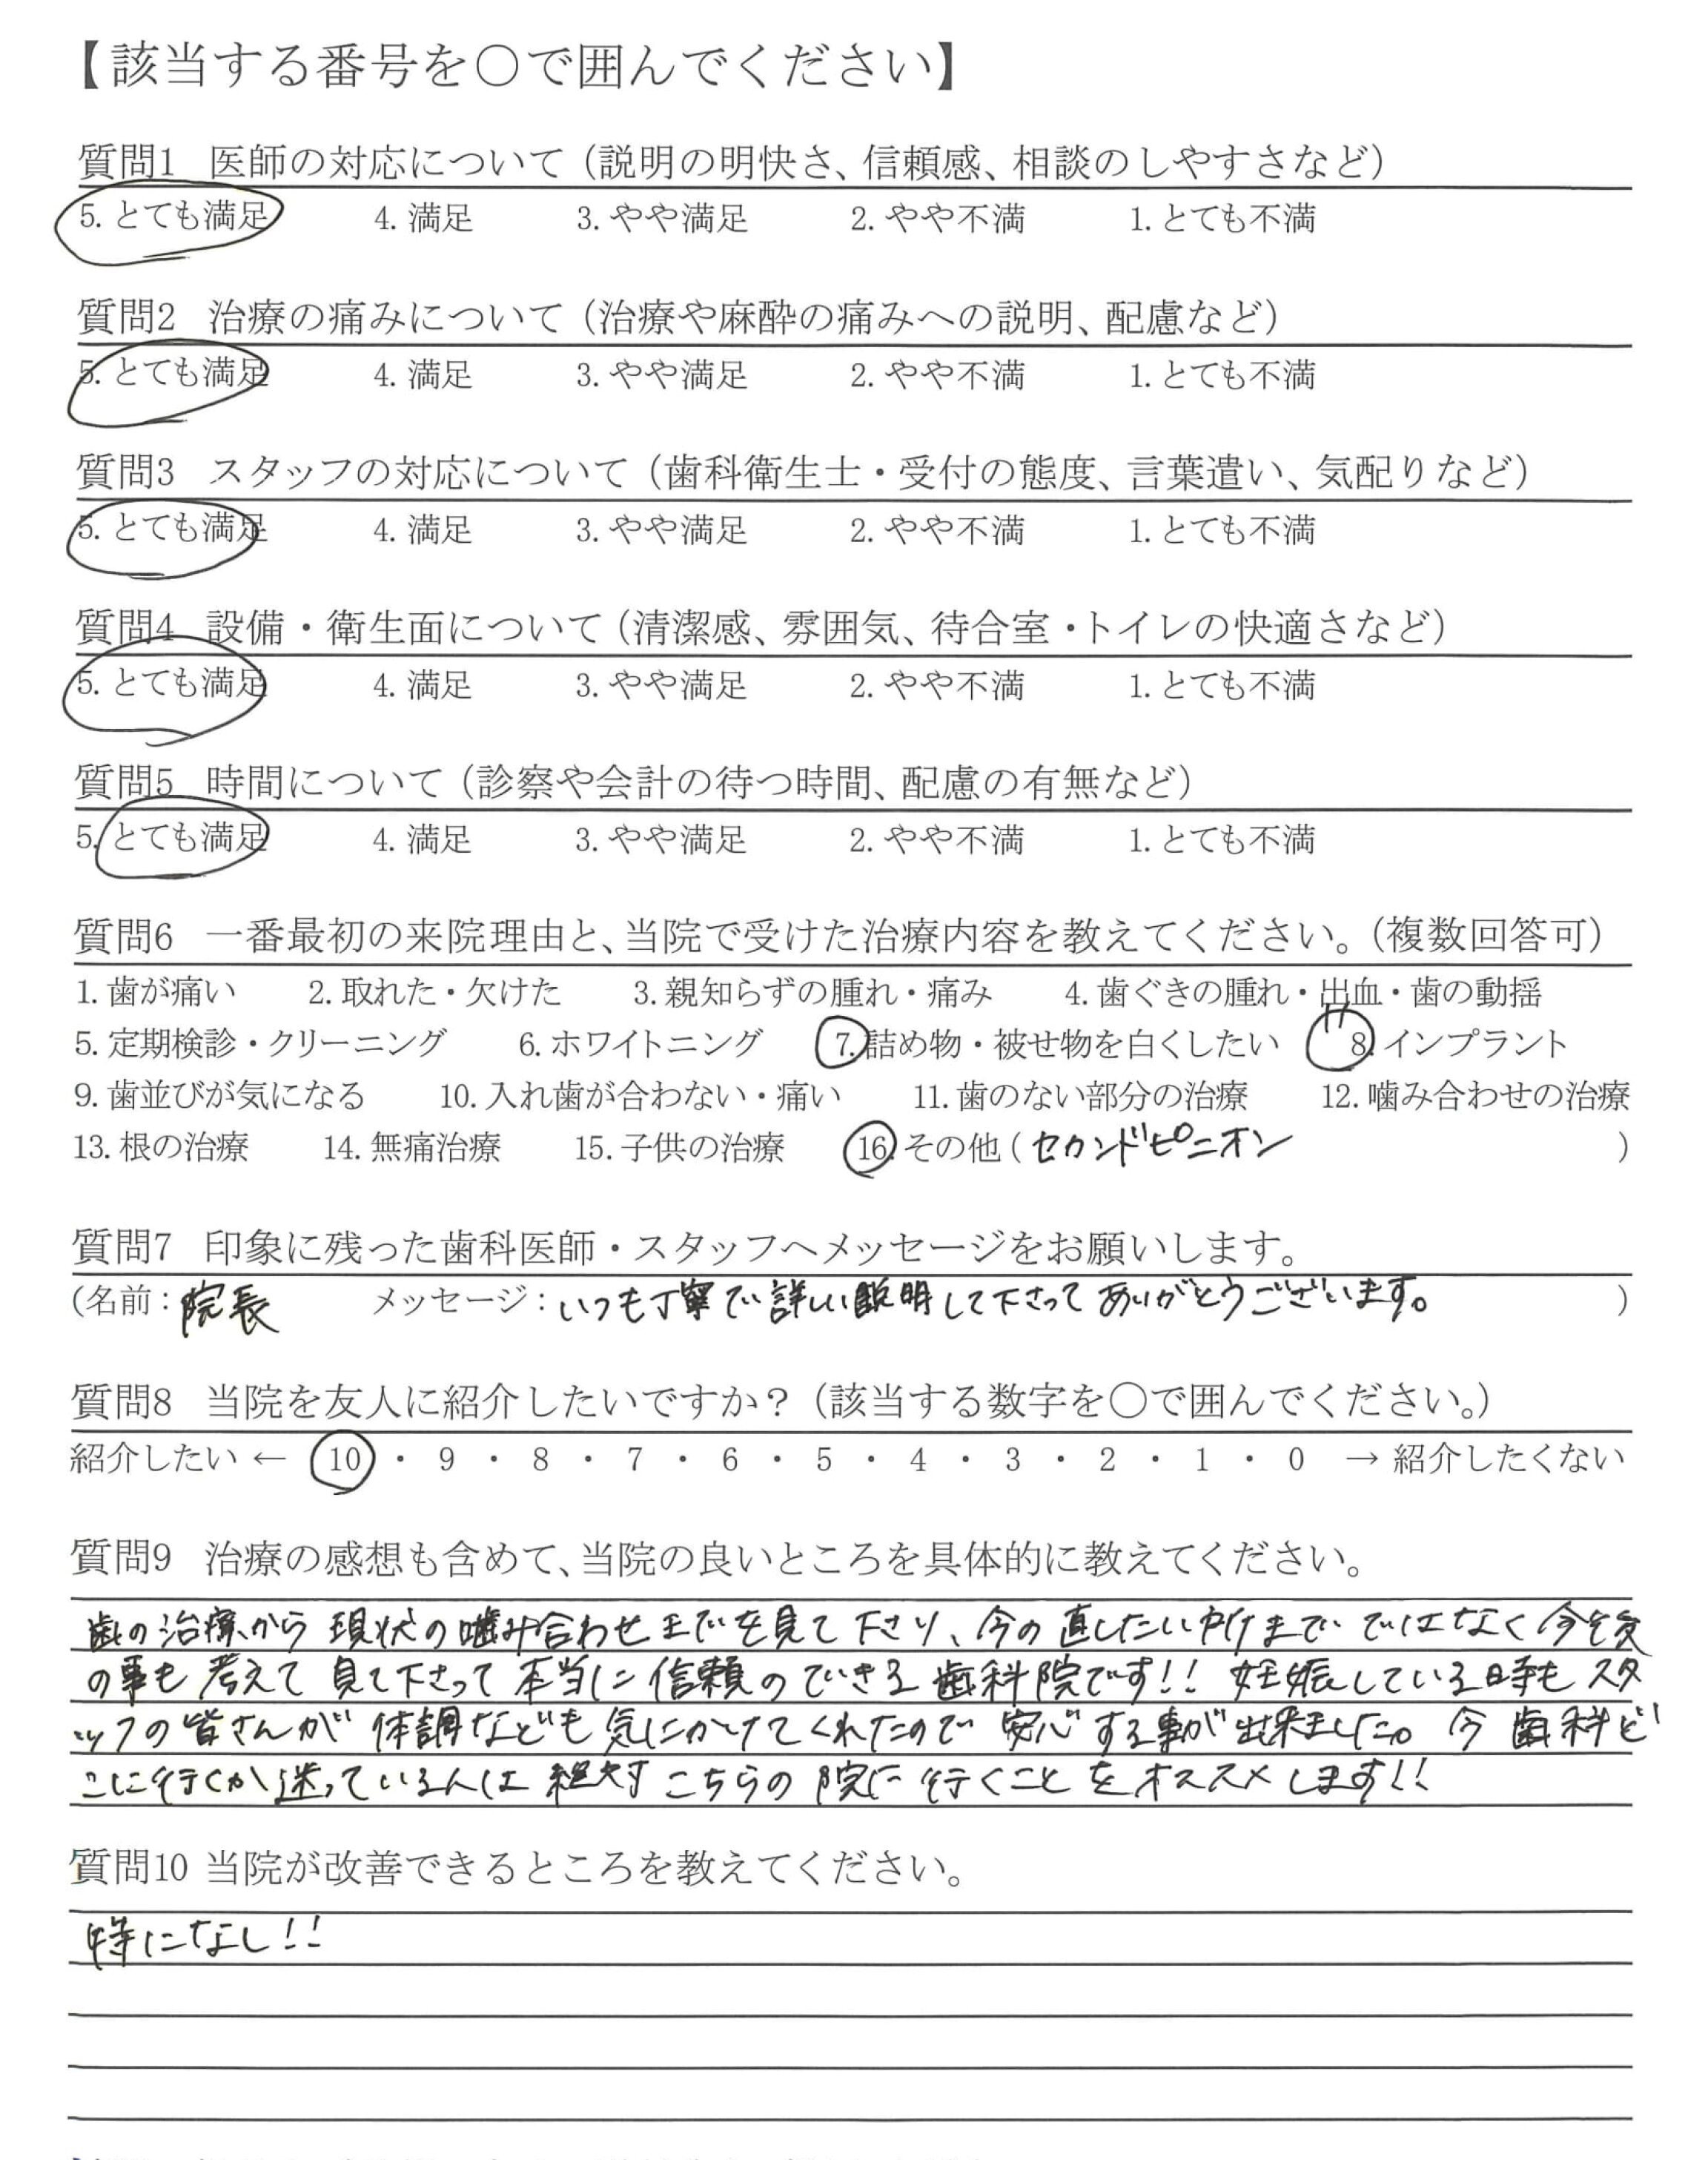 【該当する番号を〇で囲んでください】
質問1 医師の対応について（説明の明快さ、信頼感、相談のしやすさなど）
5. とても満足 4. 満足 3. やや満足 2. やや不満 1. とても不満
質問2 治療の痛みについて（治療や麻酔の痛みへの説明、配慮など）
5. とても満足 4. 満足 3. やや満足 2. やや不満 1. とても不満
質問3 スタッフの対応について（歯科衛生士・受付の態度、言葉遣い、気配りなど）
5. とても満足 4. 満足 3. やや満足 2. やや不満 1. とても不満
質問4 設備・衛生面について（清潔感、雰囲気、待合室・トイレの快適さなど）
5. とても満足 4. 満足 3. やや満足 2. やや不満 1. とても不満
質問5 時間について（診察や会計の待つ時間、配慮の有無など）
5. とても満足 4. 満足 3. やや満足 2. やや不満 1. とても不満
質問6 一番最初の来院理由と、当院で受けた治療内容を教えてください。（複数回答可）
1. 歯が痛い 2. 取れた・欠けた 3. 親知らずの腫れ・痛み 4. 歯ぐきの腫れ・出血・歯の動揺
5. 定期検診・クリーニング 6. ホワイトニング 7. 詰め物・被せ物を白くしたい 8. インプラント
9. 歯並びが気になる 10. 入れ歯が合わない・痛い 11. 歯のない部分の治療 12. 噛み合わせの治療
13. 根の治療 14. 無痛治療 15. 子供の治療 16. その他（セカンドピニオン ）
質問7 印象に残った歯科医師・スタッフへメッセージをお願いします。
（名前：院長 メッセージ：いつも丁寧で詳しい説明して下さってありがとうございます。 ）
質問8 当院を友人に紹介したいですか？（該当する数字を〇で囲んでください。）
紹介したい ← 10 ・ 9 ・ 8 ・ 7 ・ 6 ・ 5 ・ 4 ・ 3 ・ 2 ・ 1 ・ 0 → 紹介したくない
質問9 治療の感想も含めて、当院の良いところを具体的に教えてください。
歯の治療から現状の噛み合わせまでを見て下さり、今の直したいだけまでではなく今後
の事も考えて見て下さって本当に信頼のできる歯科院です!! 妊娠している時もスタ
ッフの皆さんが体調なども気にかけてくれたので安心する事が出来ました。今歯科ど
こに行くか迷っている人は絶対こちらの院に行くことをオススメします!!
質問10 当院が改善できるところを教えてください。
特になし!!